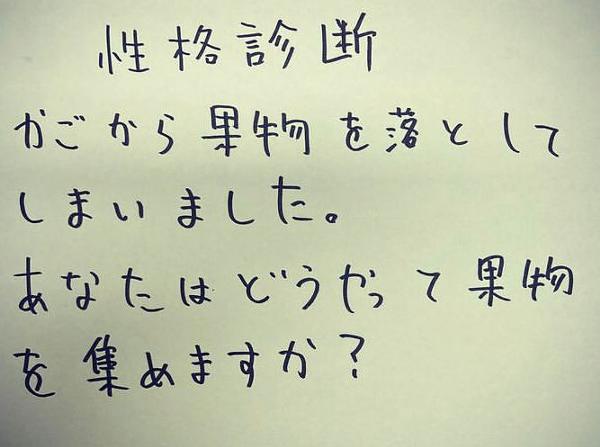 性格診断
かごから果物を落として
しまいました。
あなたはどうやって果物
を集めますか?